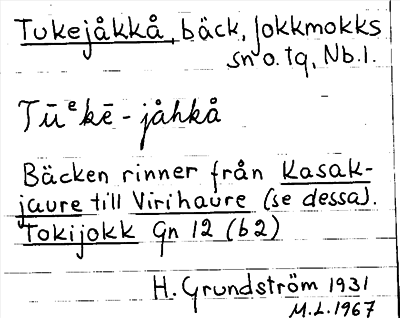 Tukejåkkå, bäck, Jokkmokks
sn o. tg, Nb.l.
Tū ͤkē-jåhkå
Bäcken rinner från Kasak-
jaure till Virihaure (se dessa).
Tokijokk Gn 12 (b2)
H. Grundström 1931
M.L. 1967